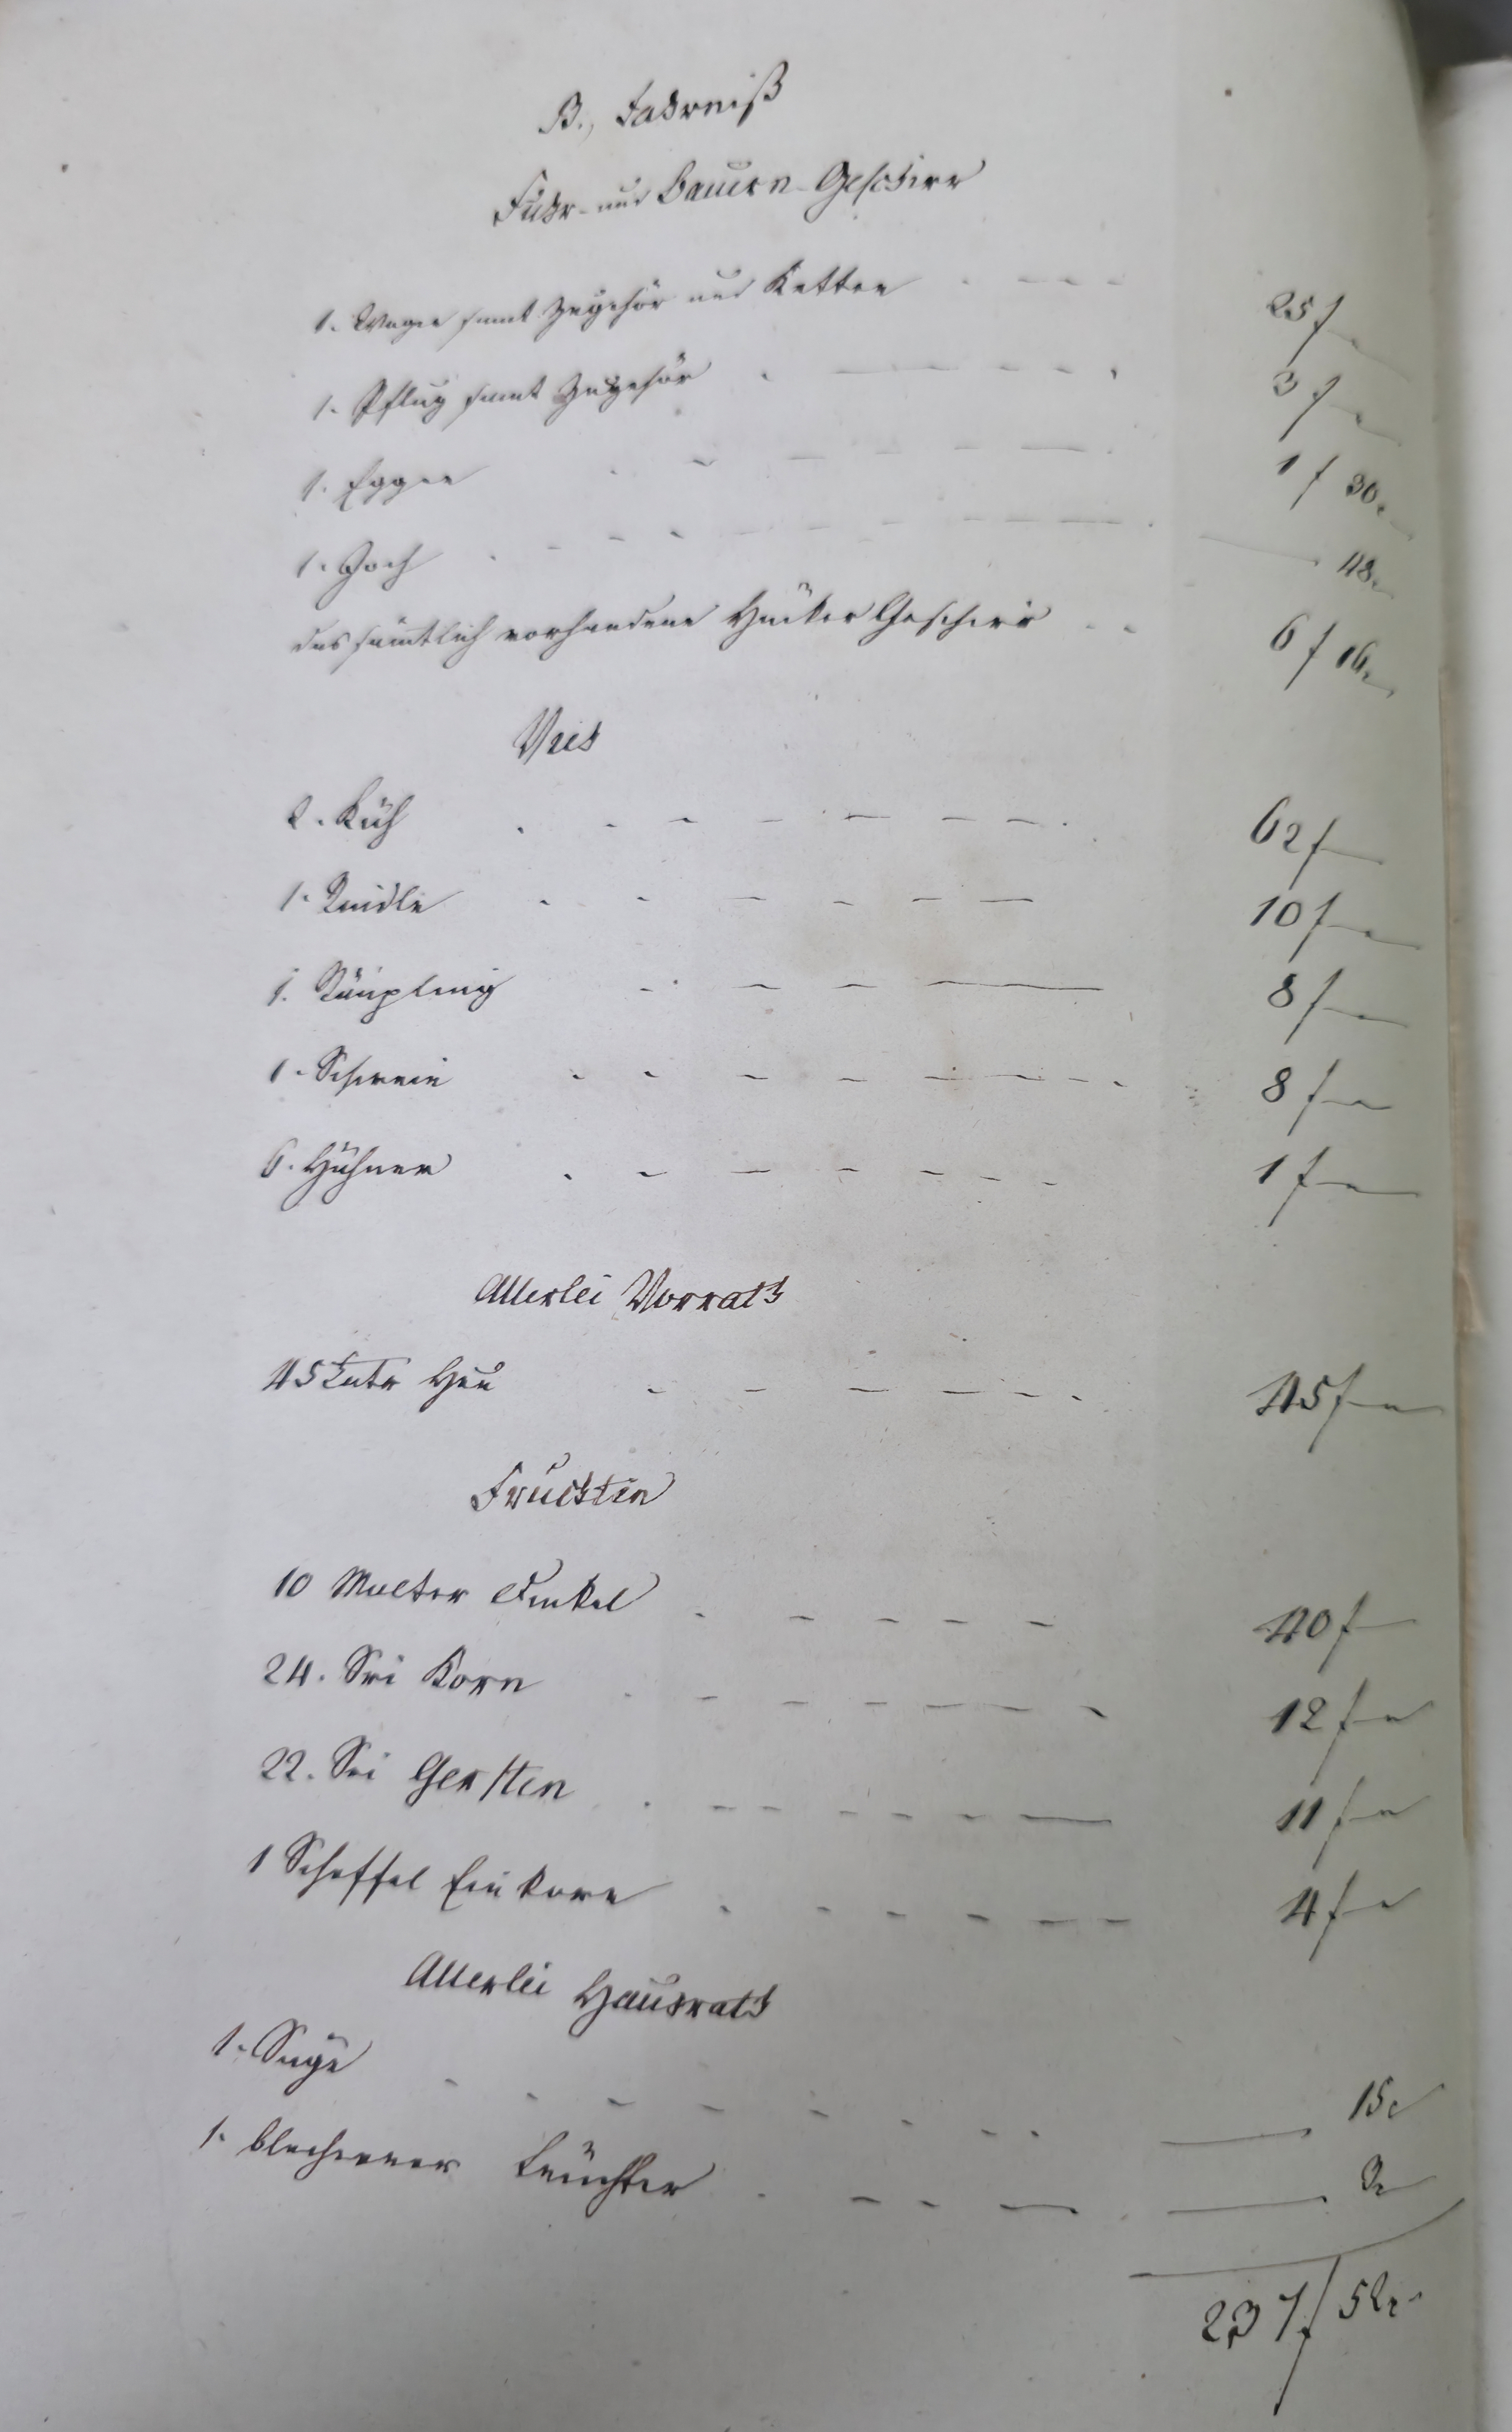 B., Fahrniß
Fuhr- und Bauern-Geschirr
1. Wagen samt Zugehör und Ketten 25 f
1. Pflug samt Zugehör 3 f
1. Eggen 1 f 30
1. Joch 48
das sämtlich vorhandene Häcker Geschirr 6 f 16
Vieh
2. Küh 62 f
1. Rindle 10 f
1. Räupling 8 f
1. Schwein 8 f
6. Hühner 1 f
Allerlei Vorrath
45 Cntr Heu 45 f
Früchten
10 Malter Dinkel 40 f
24. Sri Korn 12 f
22. Sri Gersten 11 f
1 Scheffel Einkorn 4 f
Allerlei Hausrath
1. Säge 15
1. blecherner Leuchter 3
237 f 52